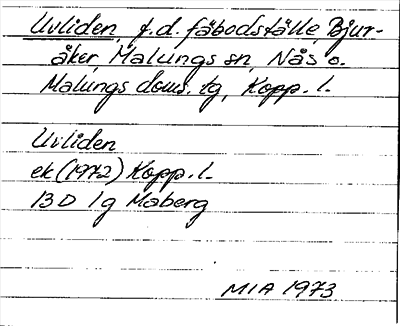 Uvliden, f.d. fäbodställe, Bjur-
åker, Malungs sn, Nås o.
Malungs doms. tg, Kopp. l.
Uvliden
ek (1972) Kopp. l.
13D 1g Moberg
MIA 1973